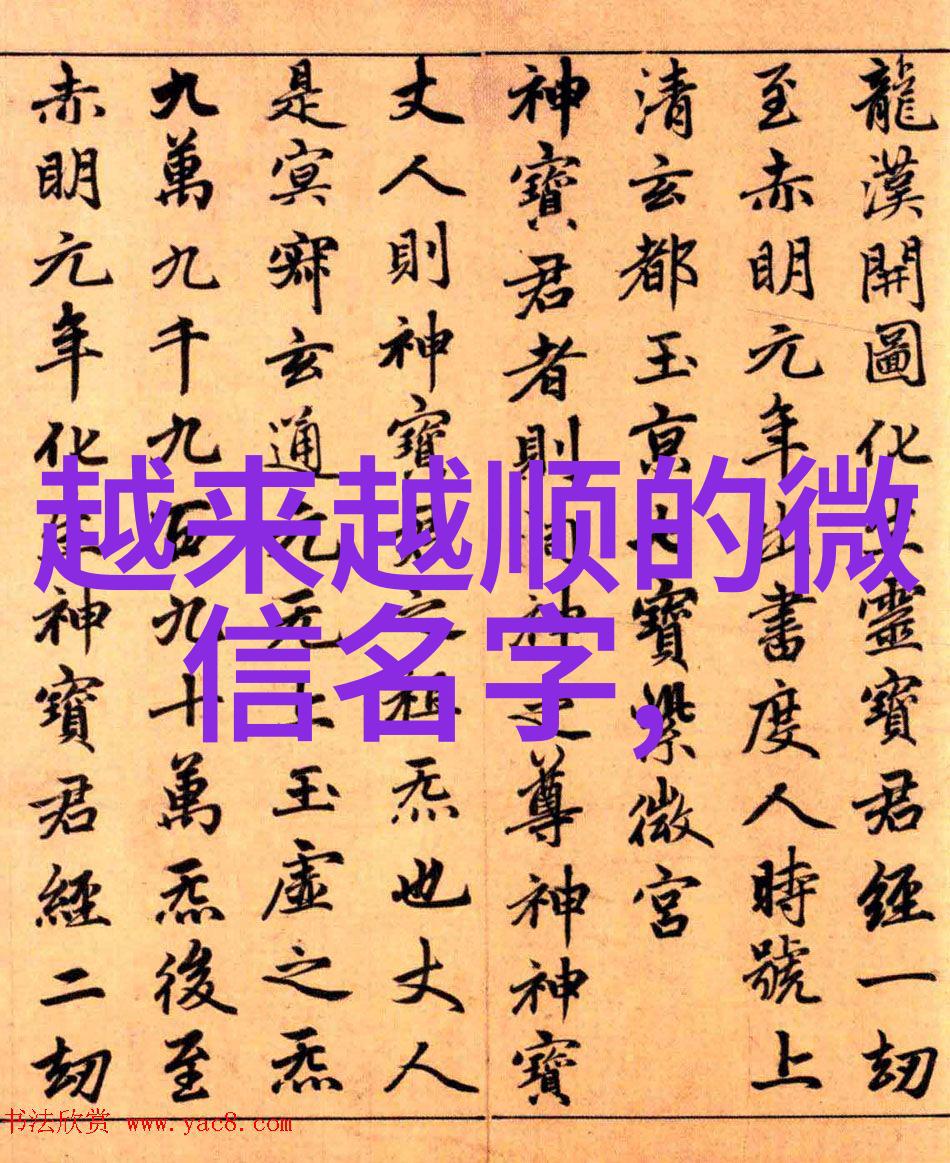 龍漢開圖化生靈寶君經一劫
至赤明元年出書度人時號上
清玄都玉京七寶紫微宮
神寶君者則洞神之尊神神寶
丈人則神寶君之祖炁也丈人
是冥寂玄通元无上玉虛之炁
九萬九千九百九十萬炁後至
赤明元年化生神寶君經二劫
越来越顺的微
信名字,
书法欣赏 www.yac8.com